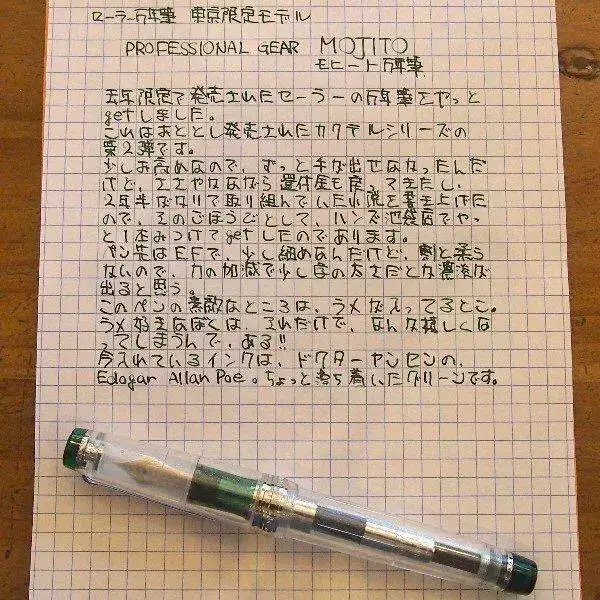 セーラー万年筆 東京限定モデル
PROFESSIONAL GEAR MOJITO
モヒート万年筆
去年限定で発売されたセーラーの万年筆をやっと
getしました。
これはおととし発売されたカクテルシリーズの
第2弾です。
少しお高めなので、ずっと手が出せなかったんだ
けど、ささやかながら還付金も戻ってきたし、
2年半がかりで取り組んでいた小説を書き上げた
ので、そのごほうびとして、ハンズ池袋店でやっ
と1本みつけてgetしたのであります。
ペン先はEFで、少し細めなんだけど、割と柔ら
ないので、力の加減で少し字の太さだとか濃淡が
出ると思う。
このペンの素敵なところは、ラメが入ってるとこ。
ラメ好きなぼくは、それだけで、なんか嬉しくな
ってしまうんで、ある!!
今入れているインクは、ドクターヤンセンの、
Edogar Allan Poe。ちょっと落ち着いたグリーンです。